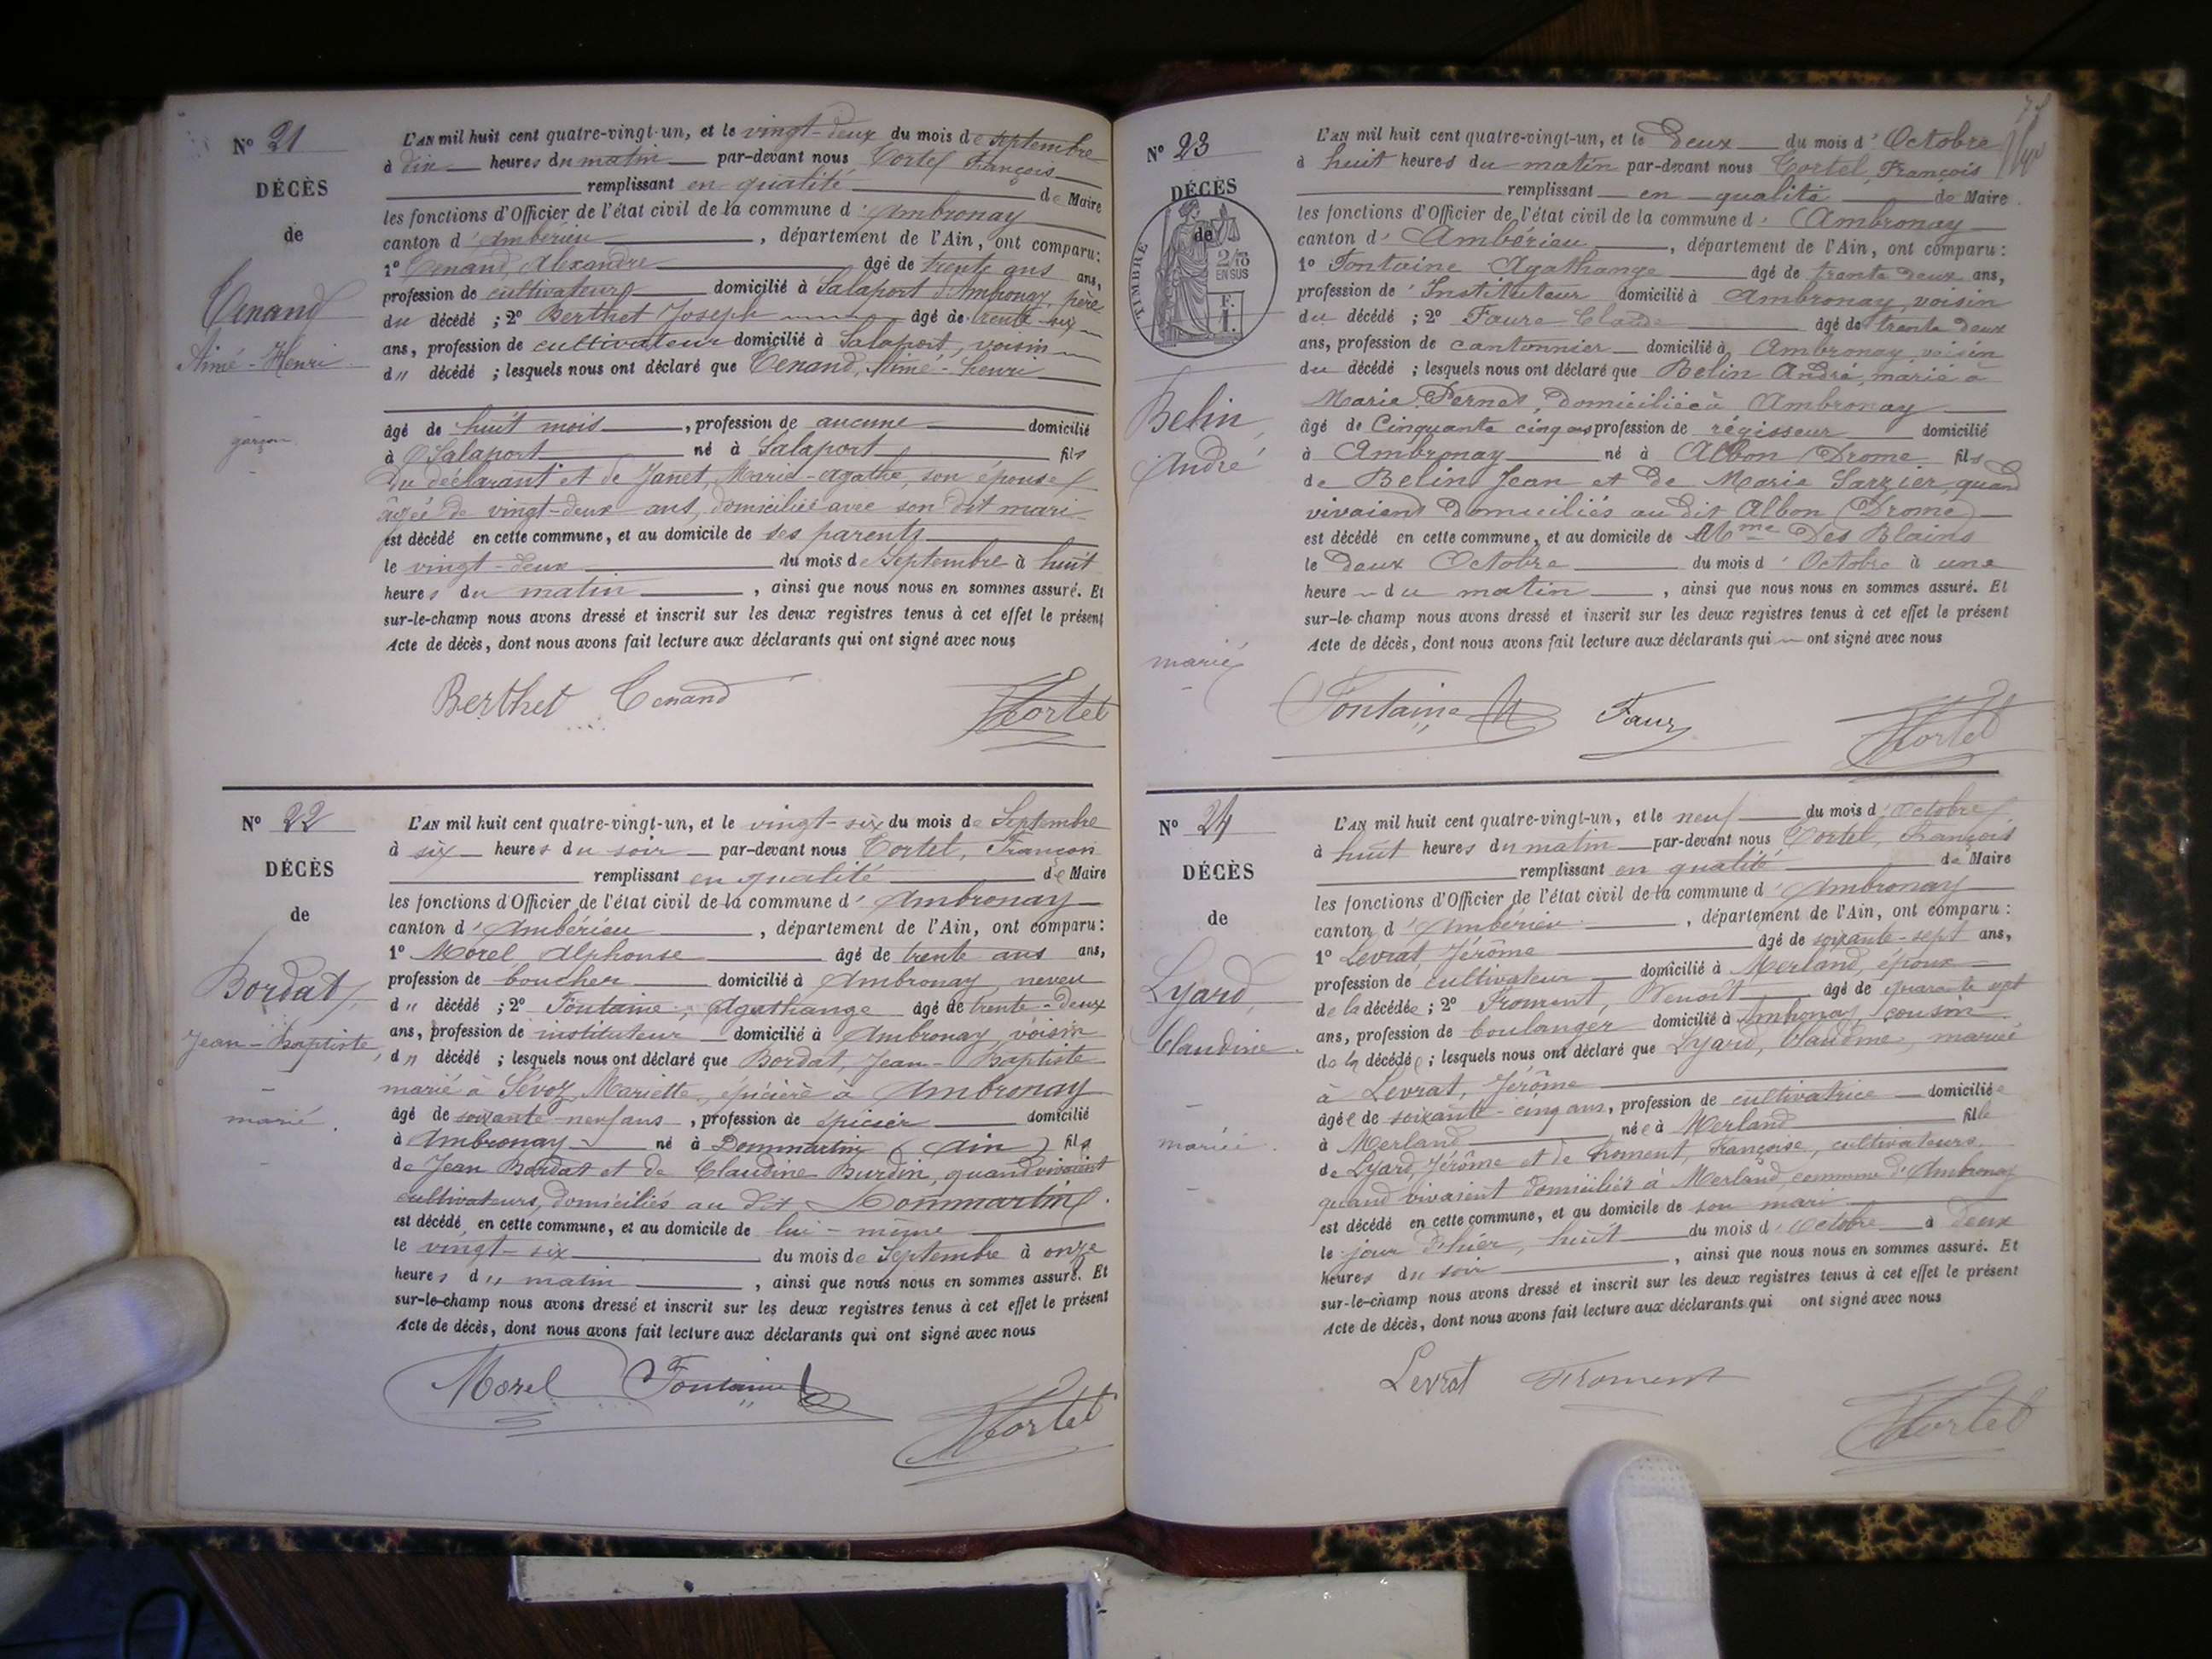 N° 21
DÉCÈS
de
Tenand
Aimé-Henri
garçon
L'AN mil huit cent quatre-vingt-un, et le vingt-deux du mois de septembre
à dix heures du matin par-devant nous Tortel François
remplissant en qualité de Maire
les fonctions d'Officier de l'état civil de la commune d'Ambronay
canton d'Ambérieu, département de l'Ain, ont comparu:
1° Tenand, Alexandre âgé de trente ans ans,
profession de cultivateur domicilié à Salaport d'Ambronay, père
du décédé; 2° Berthet Joseph âgé de trente-six
ans, profession de cultivateur domicilié à Salaport, voisin
du décédé; lesquels nous ont déclaré que Tenand, Aimé-henri
âgé de huit mois, profession de aucune domicilié
à Salaport né à Salaport fils
du déclarant et de Janet, Marie-agathe, son épouse
âgée de vingt-deux ans, domiciliée avec son dit mari
est décédé en cette commune, et au domicile de ses parents
le vingt-deux du mois de Septembre à huit
heures du matin, ainsi que nous nous en sommes assuré. Et
sur-le-champ nous avons dressé et inscrit sur les deux registres tenus à cet effet le présent
Acte de décès, dont nous avons fait lecture aux déclarants qui ont signé avec nous
Berthet Tenand Tortel
N° 22
DÉCÈS
de
Bordat,
Jean-Baptiste,
marié.
L'AN mil huit cent quatre-vingt-un, et le vingt-six du mois de Septembre
à six heures du soir par-devant nous Tortel, François
remplissant en qualité de Maire
les fonctions d'Officier de l'état civil de la commune d'Ambronay
canton d'Ambérieu, département de l'Ain, ont comparu:
1° Morel Alphonse âgé de trente ans ans,
profession de boucher domicilié à Ambronay, neveu
du décédé; 2° Fontaine, Agathange âgé de trente-deux
ans, profession de instituteur domicilié à Ambronay, voisin
du décédé; lesquels nous ont déclaré que Bordat, Jean-Baptiste
marié à Sévoz, Mariette, épicière à Ambronay
âgé de soixante-neuf ans, profession de épicier domicilié
à Ambronay né à Dommartin (Ain) fils
de Jean Bordat et de Claudine Burdin, quand vivaient
cultivateurs, domiciliés au dit Dommartin.
est décédé en cette commune, et au domicile de lui-même
le vingt-six du mois de Septembre à onze
heures du matin, ainsi que nous nous en sommes assuré. Et
sur-le-champ nous avons dressé et inscrit sur les deux registres tenus à cet effet le présent
Acte de décès, dont nous avons fait lecture aux déclarants qui ont signé avec nous
Morel Fontaine Tortel
N° 23
DÉCÈS
de
TIMBRE
2/10
EN SUS
F.
1.
Belin,
André
marié
L'AN mil huit cent quatre-vingt-un, et le Deux du mois d'Octobre
à huit heures du matin par-devant nous Tortel, François
remplissant en qualité de Maire
les fonctions d'Officier de l'état civil de la commune d'Ambronay
canton d'Ambérieu, département de l'Ain, ont comparu:
1° Fontaine Agathange âgé de trente deux ans,
profession de Instituteur domicilié à Ambronay, voisin
du décédé; 2° Faure Claude âgé de trente deux
ans, profession de cantonnier domicilié à Ambronay voisin
du décédé; lesquels nous ont déclaré que Belin André, marié à
Marie Pernet, domiciliée à Ambronay
âgé de Cinquante cinq ans profession de régisseur domicilié
à Ambronay né à Albon (Drome fils
de Belin Jean et de Marie Sarzier quand
vivaient domiciliés au dit Albon (Drome)
est décédé en cette commune, et au domicile de Mme Des Blains
le Deux Octobre du mois d'Octobre à une
heure du matin, ainsi que nous nous en sommes assuré. Et
sur-le-champ nous avons dressé et inscrit sur les deux registres tenus à cet effet le présent
Acte de décès, dont nous avons fait lecture aux déclarants qui ont signé avec nous
Fontaine Faure Tortel
N° 24
DÉCÈS
de
Lyard,
Claudine.
mariée.
L'AN mil huit cent quatre-vingt-un, et le neuf du mois d'Octobre
à huit heures du matin par-devant nous Tortel, François
remplissant en qualité de Maire
les fonctions d'Officier de l'état civil de la commune d'Ambronay
canton d'Ambérieu, département de l'Ain, ont comparu:
1° Levrat, Jérôme âgé de soixante-sept ans,
profession de cultivateur domicilié à Merland, époux
de la décédée; 2° Froment, Benoît âgé de quarante sept
ans, profession de boulanger domicilié à Ambronay, cousin
de la décédée; lesquels nous ont déclaré que Lyard, Claudine, mariée
à Levrat, Jérôme
âgée de soixante-cinq ans, profession de cultivatrice domiciliée
à Merland née à Merland fille
de Lyard, Jérôme et de Froment, Françoise, cultivateurs,
quand vivaient domiciliés à Merland, commune d'Ambronay
est décédé en cette commune, et au domicile de son mari
le jour d'hier, huit du mois d'Octobre à deux
heures du soir, ainsi que nous nous en sommes assuré. Et
sur-le-champ nous avons dressé et inscrit sur les deux registres tenus à cet effet le présent
Acte de décès, dont nous avons fait lecture aux déclarants qui ont signé avec nous
Levrat Froment Tortel